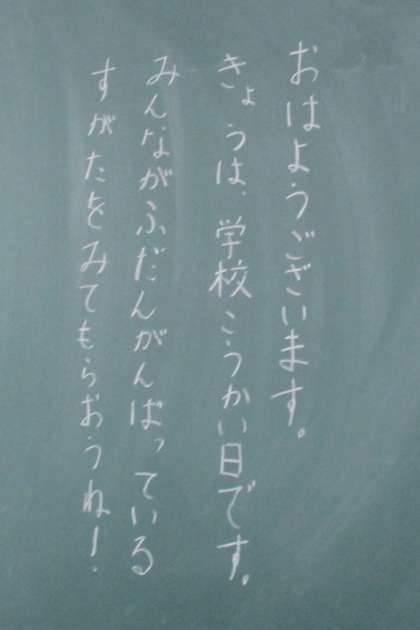 おはようございます。
きょうは、学校こうかい日です。
みんながふだんがんばっている
すがたをみてもらおうね!